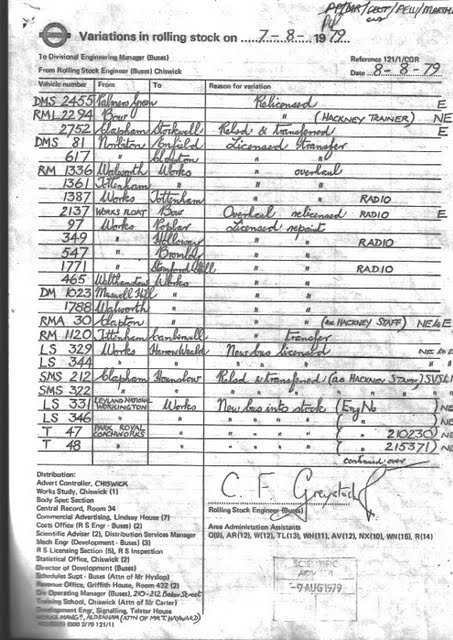 PP/DIA/COST/PEW/MARTIN
Variations in rolling stock on 7-8-1979.
To Divisional Engineering Manager (Buses)
Reference 121/1/CGR
From Rolling Stock Engineer (Buses) Chiswick
Date 8-8-79
Vehicle number From To Reason for variation
DMS 2455 Palmers Green Relicensed E
RML 2294 Bow " (HACKNEY TRAINER) NE
2752 Clapham Stockwell Relsd & transferred E
DMS 81 Norbiton Enfield Licensed transfer
617 " Clapton " "
RM 1336 Walworth Works " overhaul
1361 Tottenham " " "
1387 Works Tottenham " " RADIO
2137 WORKS FLOAT Bow Overhaul relicensed RADIO E
97 Works Poplar Licensed repaint
349 " Holloway " " RADIO
547 " Bromley " "
1771 " Stamford Hill " " RADIO
465 Walthamstow Works " "
DM 1023 Muswell Hill " " "
1788 Walworth " " "
RMA 30 Clapton " " " (ex HACKNEY STAFF) NE & E
RM 1120 Tottenham Camberwell " transfer
LS 329 Works Harrow Weald New bus licensed
LS 344 " " " " "
SMS 212 Clapham Hounslow Relsd & transferred (as HACKNEY STAFF)
SMS 322 " " " "
LS 331 LEYLAND NATIONAL WORKINGTON Works New bus into stock (Eng No
LS 346 " " " " " " ( "
T 47 PARK ROYAL COACHWORKS " " " " " ( " 210230) NE
T 48 " " " " " " ( " 215371) NE
(continued over
Distribution:
Advert Controller, CHISWICK
Works Study, Chiswick (1)
Body Spec Section
Central Record, Room 34
Commercial Advertising, Lindsay House (7)
Costs Office (R S Engr - Buses) (2)
Scientific Adviser (2), Distribution Services Manager
Mech Engr (Development - Buses) (3)
R S Licensing Section (5), R S Inspection
Statistical Office, Chiswick (2)
Director of Development (Buses)
Schedules Supt - Buses (Attn of Mr Hyslop)
Revenue Office, Griffith House, Room 432 (2)
Div Operating Manager (Buses), 210-212 Baker Street
Training School, Chiswick (Attn of Mr Carter)
Development Engr, Signalling, Telstar House
WORKS MANGR., ALDENHAM (ATTN OF MR T. HAYWARD)
C F Greystock
Rolling Stock Engineer (Buses)
Area Administration Assistants
Q(9), AR(12), W(12), TL(13), WH(11), AV(12), NX(10), WN(15), R(14)
SCIENTIFIC
ADV
-9 AUG 1979